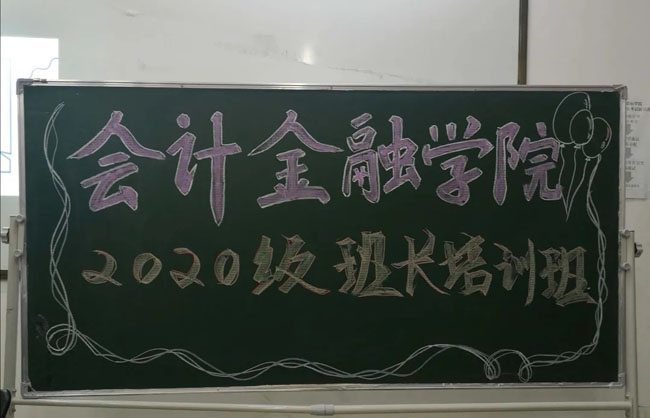 会计金融学院
2020级班长培训班